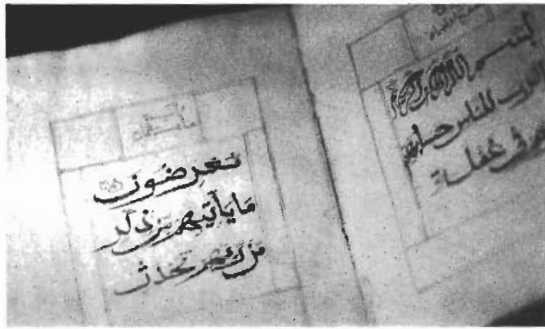 بسم الله
اقترب للناس حسابهم
وهم في غفلة
معرضون
مَا يَأتيهم من ذكر
من ربهم محدث